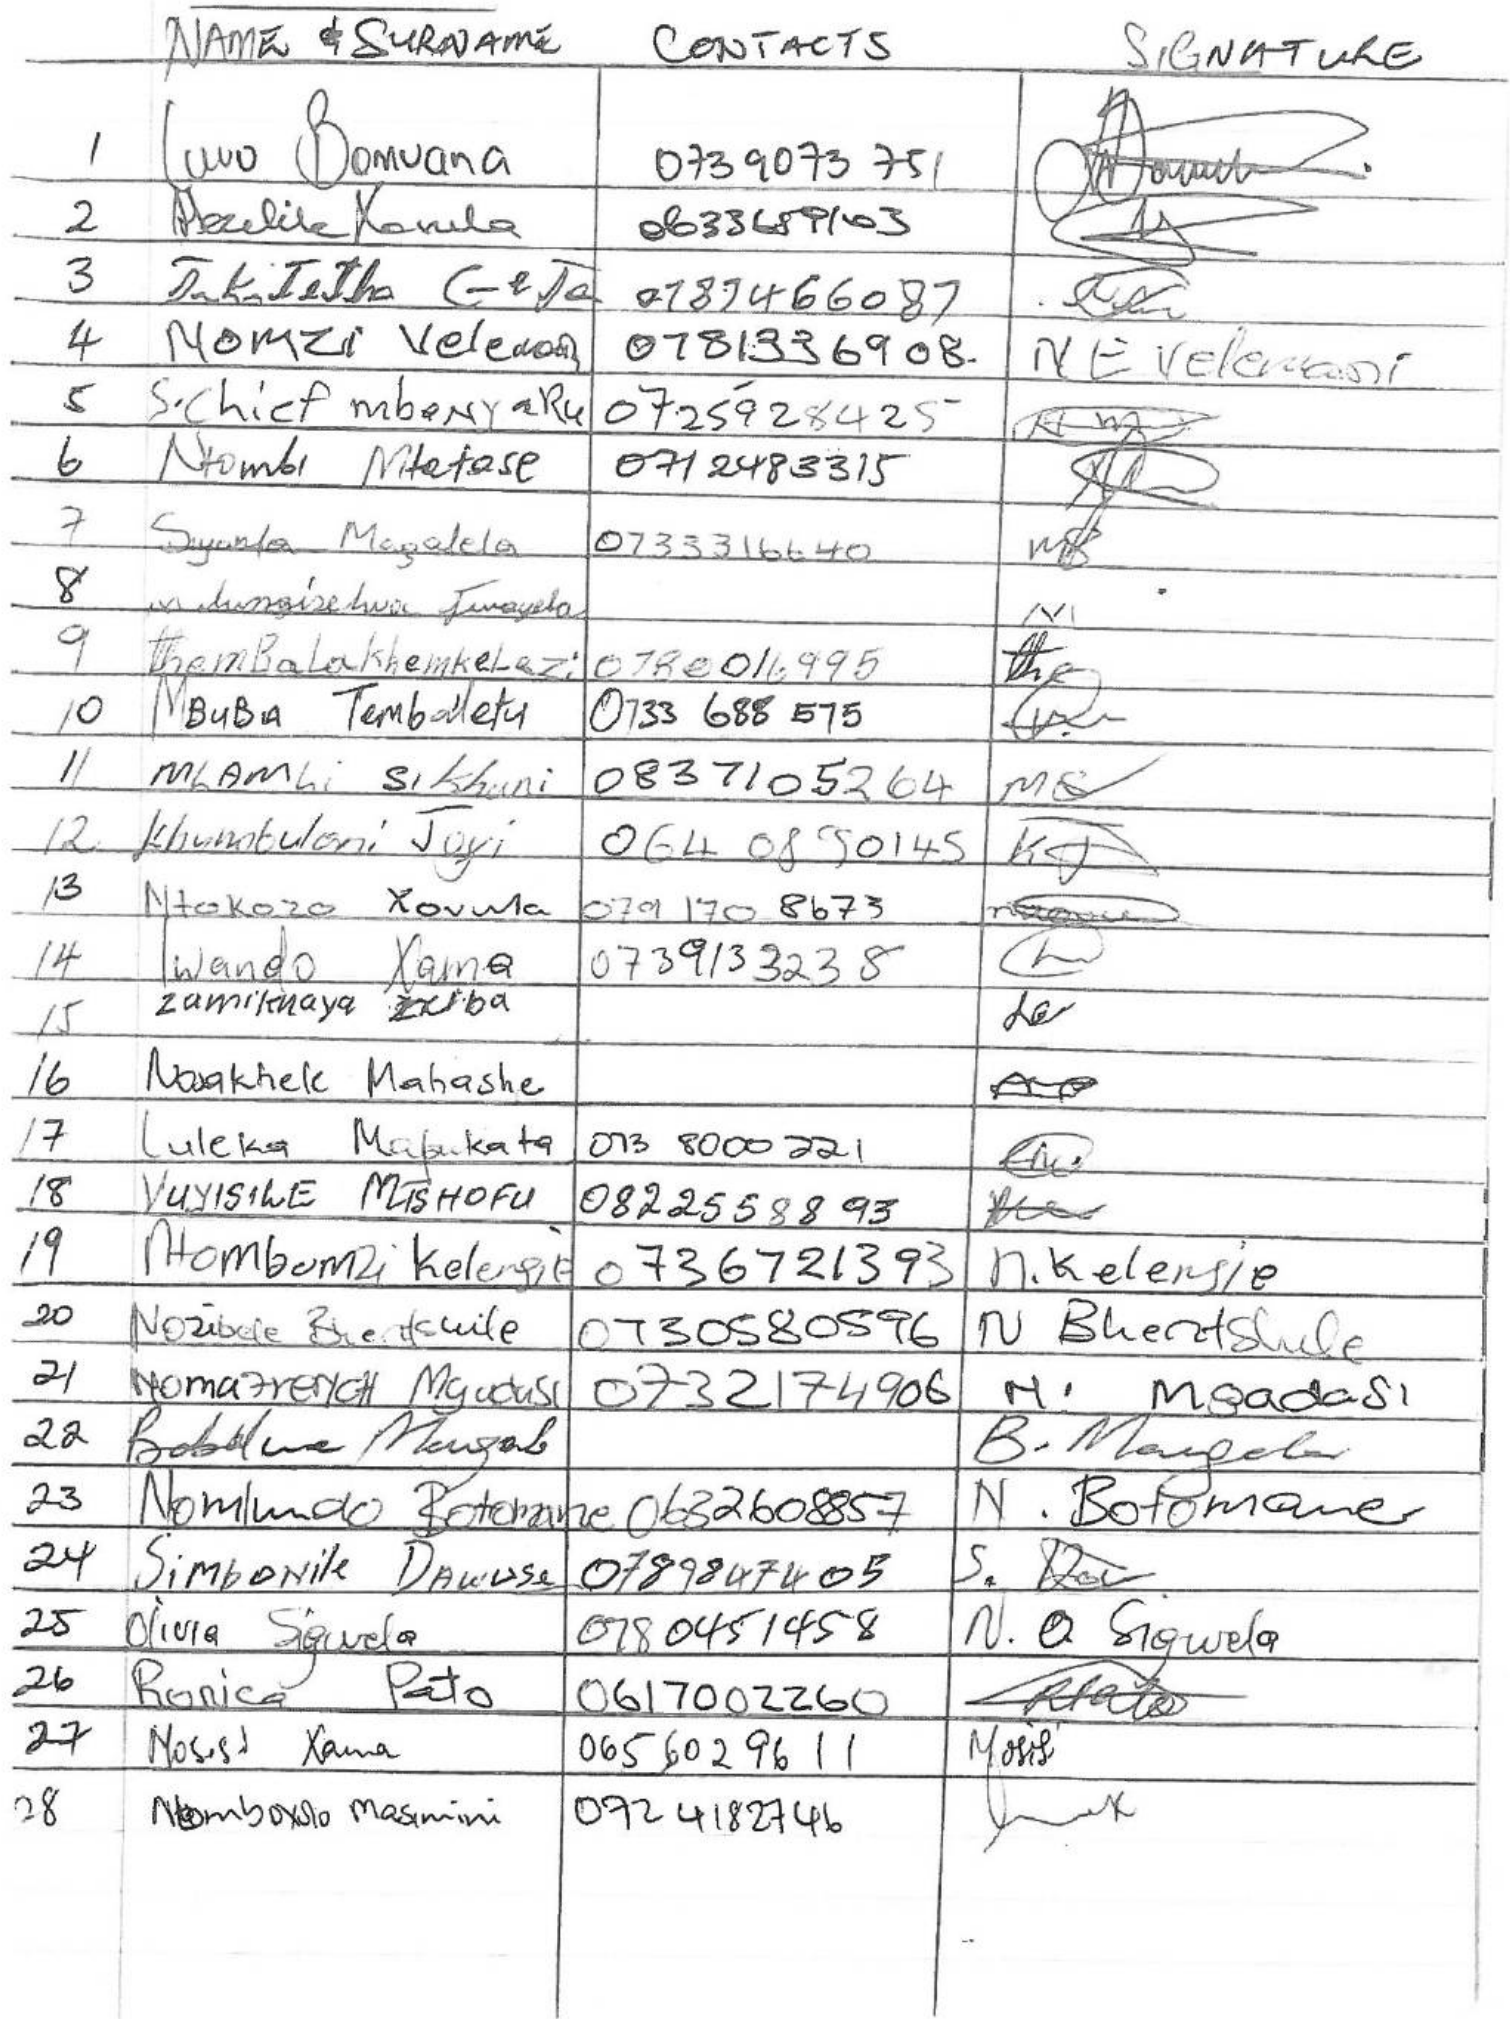 NAME & SURNAME CONTACTS SIGNATURE
1 Luvo Bomvana 0739073 751
2 Xavula 0633689103
3 0787466087
4 Nomzi Velemani 0781336908. N E Velemani
5 S.Chief mbonyaRu 0725928425
6 Ntombi Mtatase 0712483315
7 Siyanda Magalela 0733316640 MS
8
9 thembalakhemkelezi 0780016995 the
10 MBuBa Tembaletu 0733 688 575
11 MLAMLi sikhuni 0837105264 MS
12 khumbulani Joyi 064 0890145 KJ
13 Ntokozo Xovula 079 170 8673
14 lwando Xama 0739133238
15 zamikhaya
16 Noakhele Mahashe
17 Luleka Mapukata 073 8000 221
18 VUYISILE MTSHOFU 0822558893
19 Ntombomzi Kelengie 0736721393 N.Kelengie
20 Nozibele Bhentshile 0730580596 N Bhentshile
21 NomaFRENCH Mgudusi 0732174906 N. Mgadasi
22 B. Mangala
23 Nomlundo Botomane 0632608857 N. Botomane
24 Simbonile Dawuse 0789847405 S.
25 Olivia Sigwela 0780451458 N. O Sigwela
26 Ronica Pato 0617002260 RPato
27 Nosisi Xama 0656029611 Nosisi
28 Ntomboxolo Masimini 0724182746